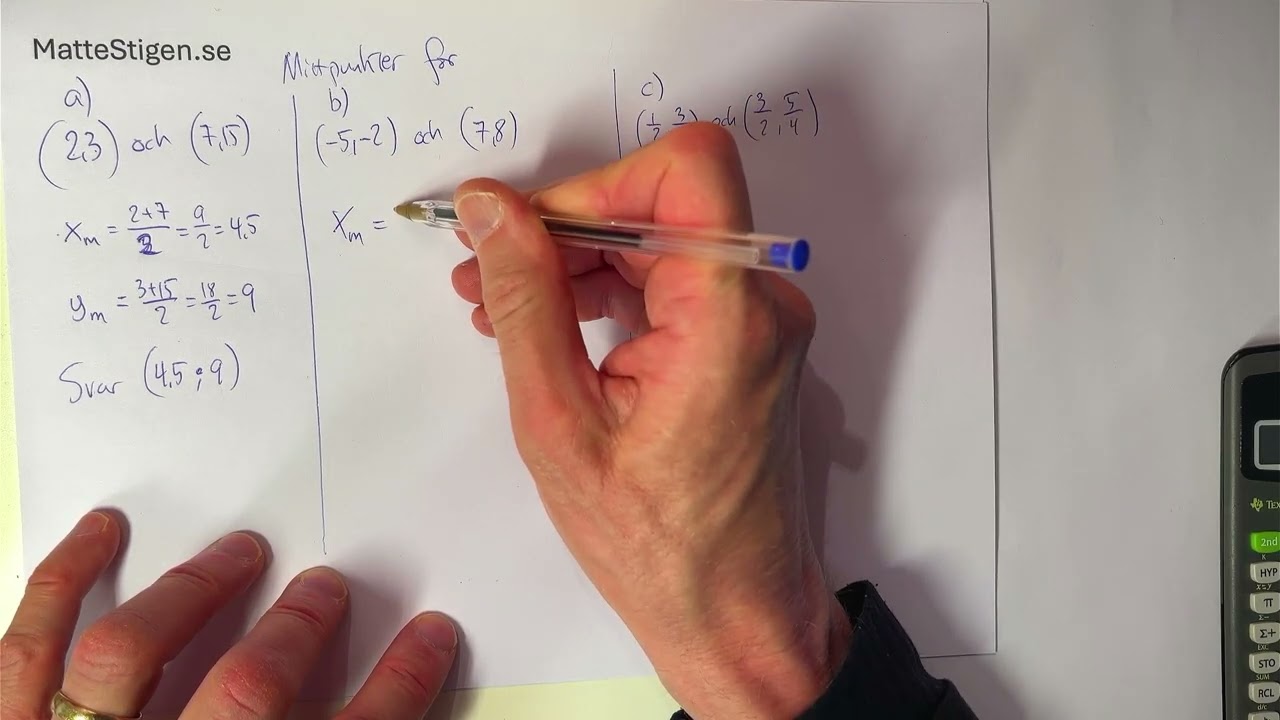 MatteStigen.se
Mittpunkter för
a)
(2,3) och (7,15)
xm = 2+7/2 = 9/2 = 4,5
ym = 3+15/2 = 18/2 = 9
Svar (4,5 ; 9)
b)
(-5,-2) och (7,8)
Xm =
c)
(1/2 3/ och (3/2, 5/4)
TEX
2nd
HYP
π
Σ+
STO
RCL